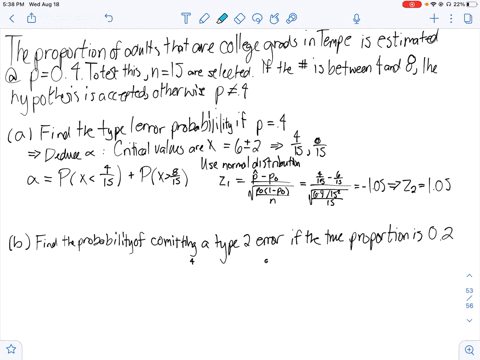 5:38 PM Wed Aug 18
22%
The proportion of adults that are college grads in Tempe is estimated
@ p=0.4. To test this, n=15 are selected. If the # is between 4 and 8, the
hypothesis is accepted, otherwise p≠.4
(a) Find the type 1 error probability if p=.4
⇒ Deduce α: Critical values are x = 6±2 ⇒ 4/15, 8/15
Use normal distribution
α = P(x< 4/15) + P(x> 8/15) z₁ = (p̂ - p₀)/√(p₀(1-p₀)/n) =
= -1.05 ⇒ z₂ = 1.05
(b) Find the probability of comitting a type 2 error if the true proportion is 0.2
53
/
56